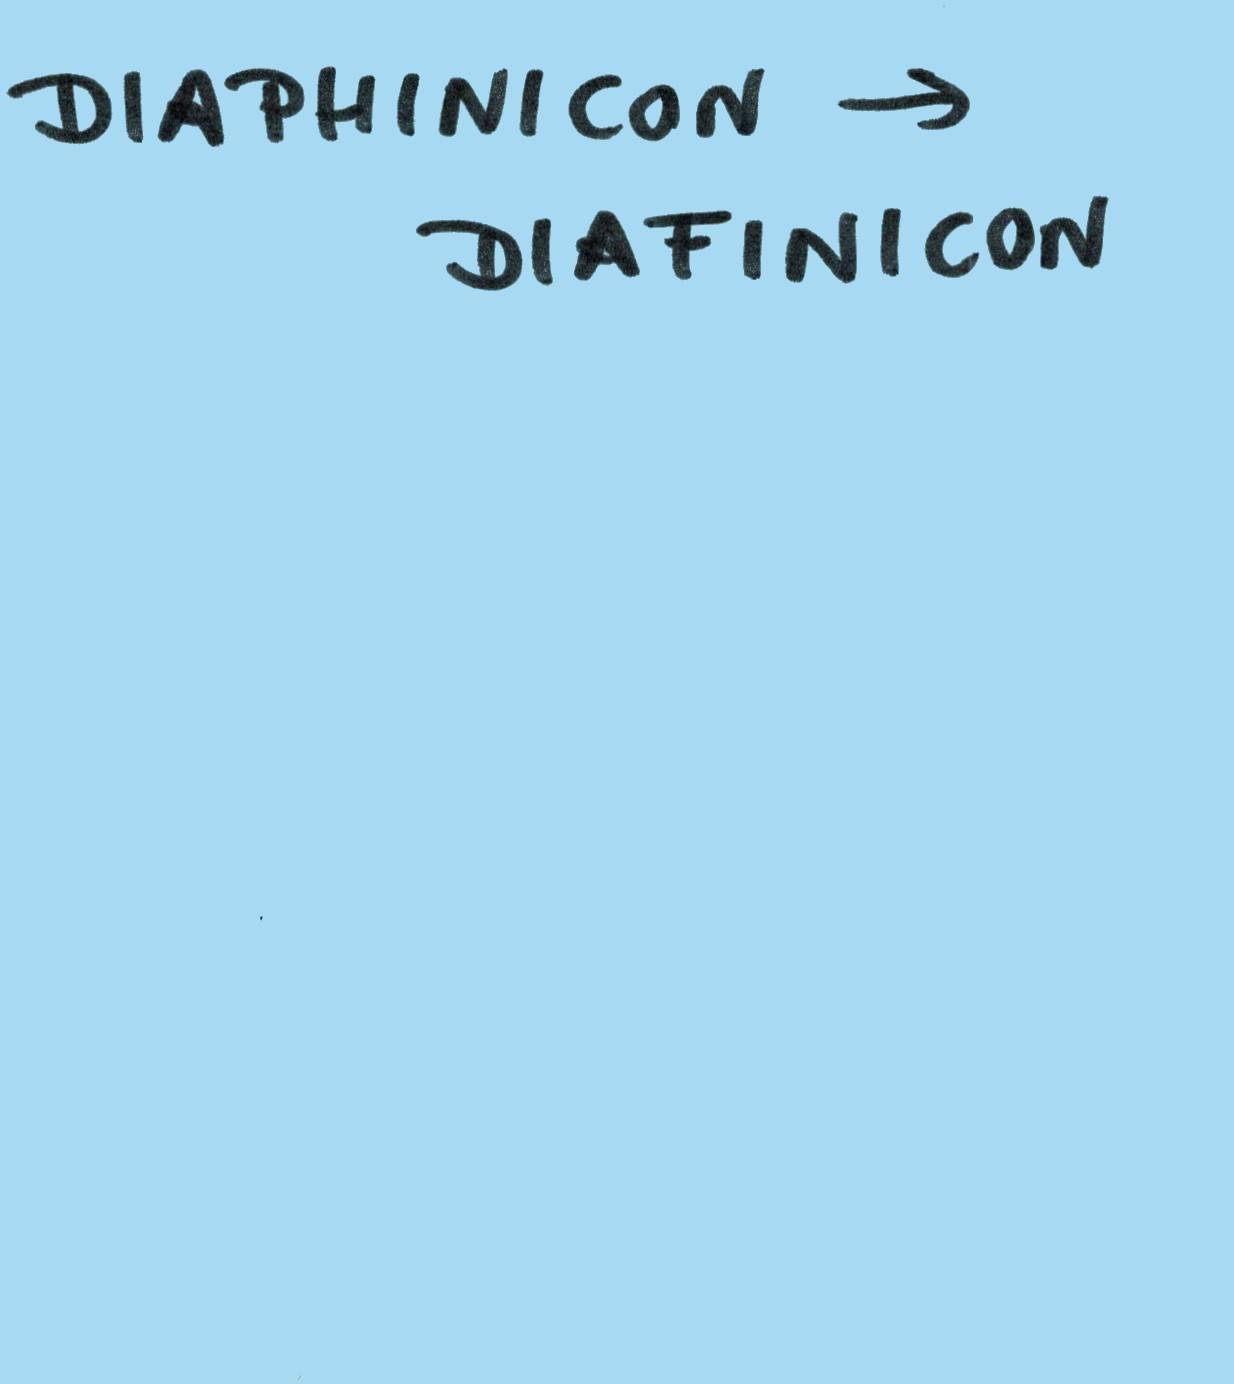 DIAPHINICON →
DIAFINICON